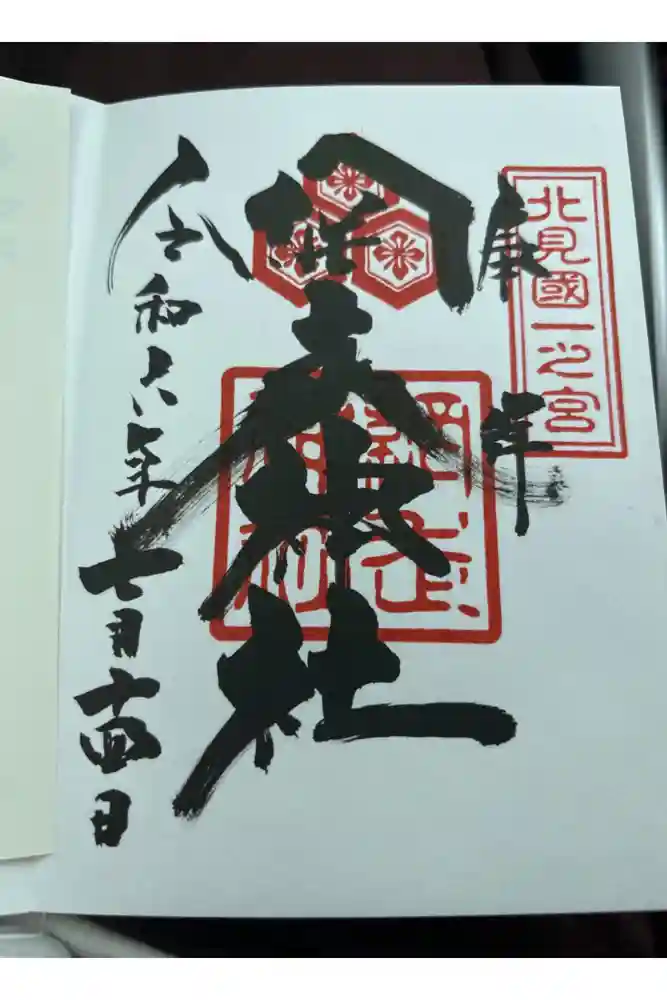 北見國一之宮
奉拝
網走神社
網走
令和六年七月十四日